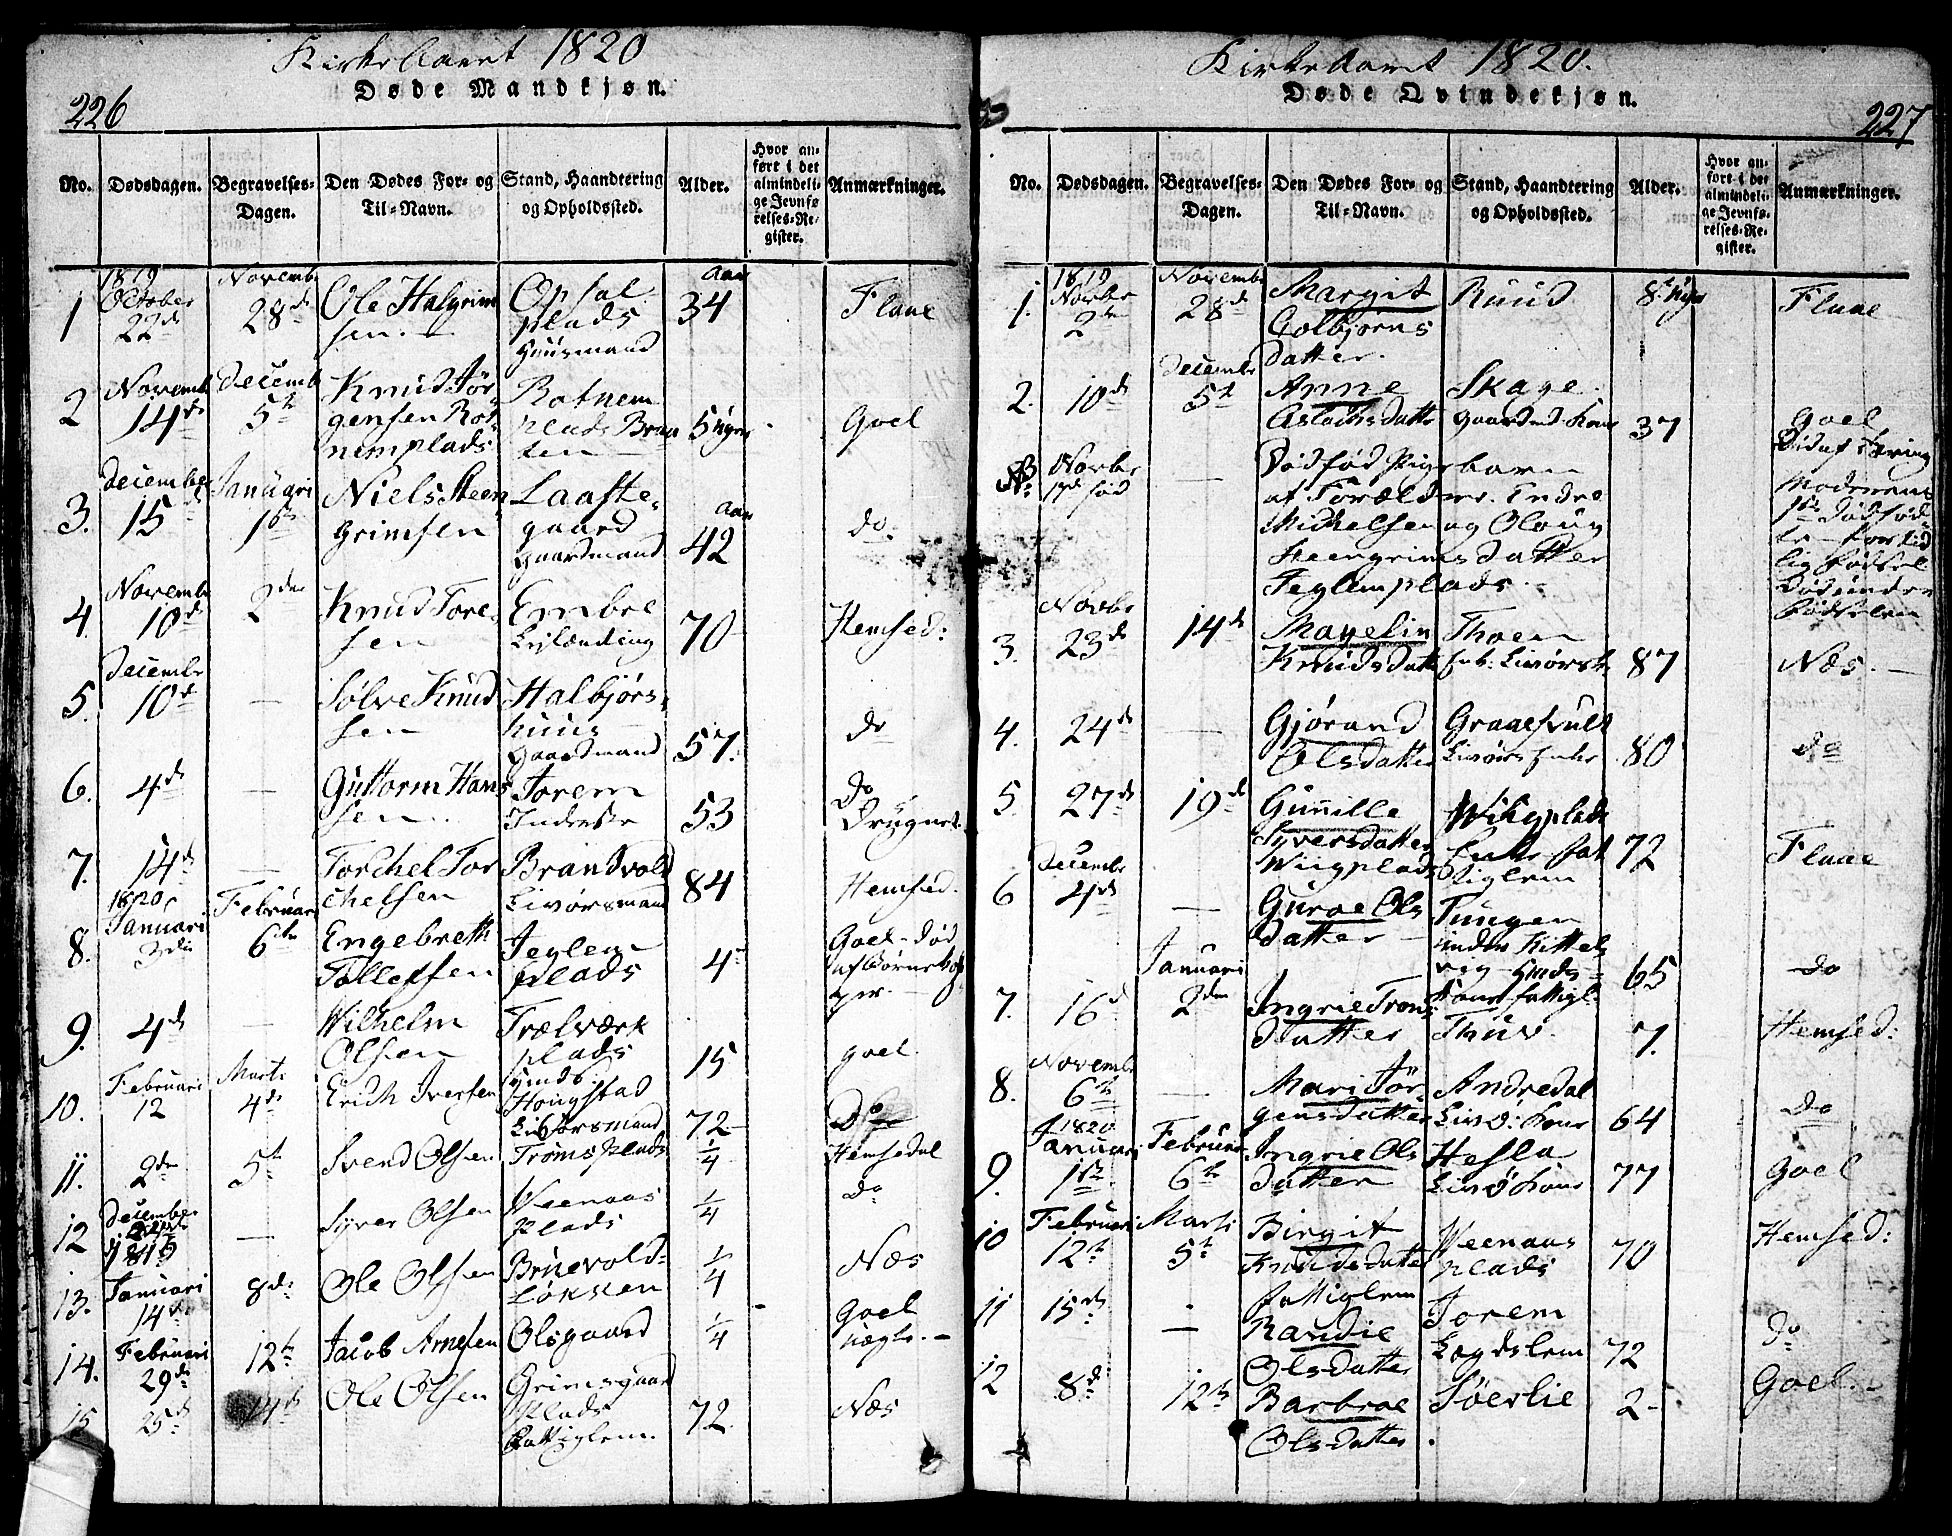 Kirke Aaret 1820
Døde Mandkjøn.
226
No. Dødsdagen. Begravelses-Dagen. Den Dødes For- og Til-Navn. Stand, Haandtering og Opholdssted. Alder. Hvor anført i det almindelige Jevnførelses-Register. Anmærkninger.
1 1819 October 22de Novemb 28de Ole Halgrimsen. Opsal plads Huusmand 34 Aar Flaae
2 Novemb 14de Decemb 5t Knud Jørgensen Rotnemplads Rotnem plads 5 Goel
3. December 15d Januari 1ste Niels Steengrimsen Laaftegaard gaardmand 42 Aar do.
4. Novemb 10d 2den Knud Toresen Embre 70 Hemsed:
5. Decemb 10d — Sølve Knudsen Halbjørshuus Gaardmand 57. do
6. 4de — Guttorm Hansen Torem Inderste 53 do Drugnet.
7. 14de — Torchel Torchelsen Brandvold Livørsmand 84 Hemsed.
8. 1820 Januari 3die Februar 6te Engebreth Tollefsen Teglem plads 4 Goel - død af Børnekopper.
9. 4de — Wilhelm Olsen Trælværk plads 15 Goel.
10. Februari 12 Marti 4de Erich Iversen Hougstad Livørsmand 72
11. 2de 5t Svend Olsen Troms Plads 1/4 Hemsedal
12 December 1819 — Syver Olsen Veenaas plads 1/4 do
13. Januari 14de 8de Ole Olsen Bruevold Løkken 1/4 Næs
14. Februari 29de 12te Jacob Arnesen Olsgaard 1/4 Goel
15 25de 14de Ole Olsen Grimsgaard Plads Fattiglem. 72. Næs
Kirke Aaret 1820.
Døde Qvindekjøn.
227
No. Dødsdagen. Begravelses-Dagen. Den Dødes For- og Til-Navn. Stand, Haandtering og Opholdssted. Alder. Hvor anført i det almindelige Jevnførelses-Register. Anmærkninger.
1. 1819 Novbr 2den Novemb 28de Margit Colbjørns datter. Ruud 8 Flaae
2. 10de Decembr 5t Anne Aslachsdatter Skage gaardmd Kone 37 Goel
Novbr 17de fød — Dødfød Pigebarn af Forældrer. Endre Michelsen og Oloug Steengrimsdatter Teglemplads. Død af Tæring Moderens 1ste Dødfødte fortidlig Fødsel Død under Fødselen
3. Novbr 23de 14de Magelin Knudsdatt Thoen Enk: Livørsk 87 Næs.
4. 24de — Gjørand Olsdatter Livørs Enke 80 do
5. 27de 19de Gunille Syversdatter Wiigplads Wiigplads Enke Fattiglem 72 Flaae
6 Decembr 4de — Guroe Olsdatter Tungen under Kittelsvig 65 do
7. 16d Januari 2den Ingrie Tronsdatter Thuv. 7. Hemsed:
8. Novemb 6te — Mari Jørgensdatter Andredal Livø: Kone 64 do
9. 1820 Januari 1ste Februari 6te Ingrie Olsdatter Hesla Livø: Kone 77 Goel
10 Februari 12te Marti 5t Birgit Knudsdatter Veenaas plads fattiglem 70 Hemsed:
11 15de — Randie Olsdatter Torem Lægdslem 72 do
12 8de 12te Barbroe Olsdatter Søerlie 2 Goel.